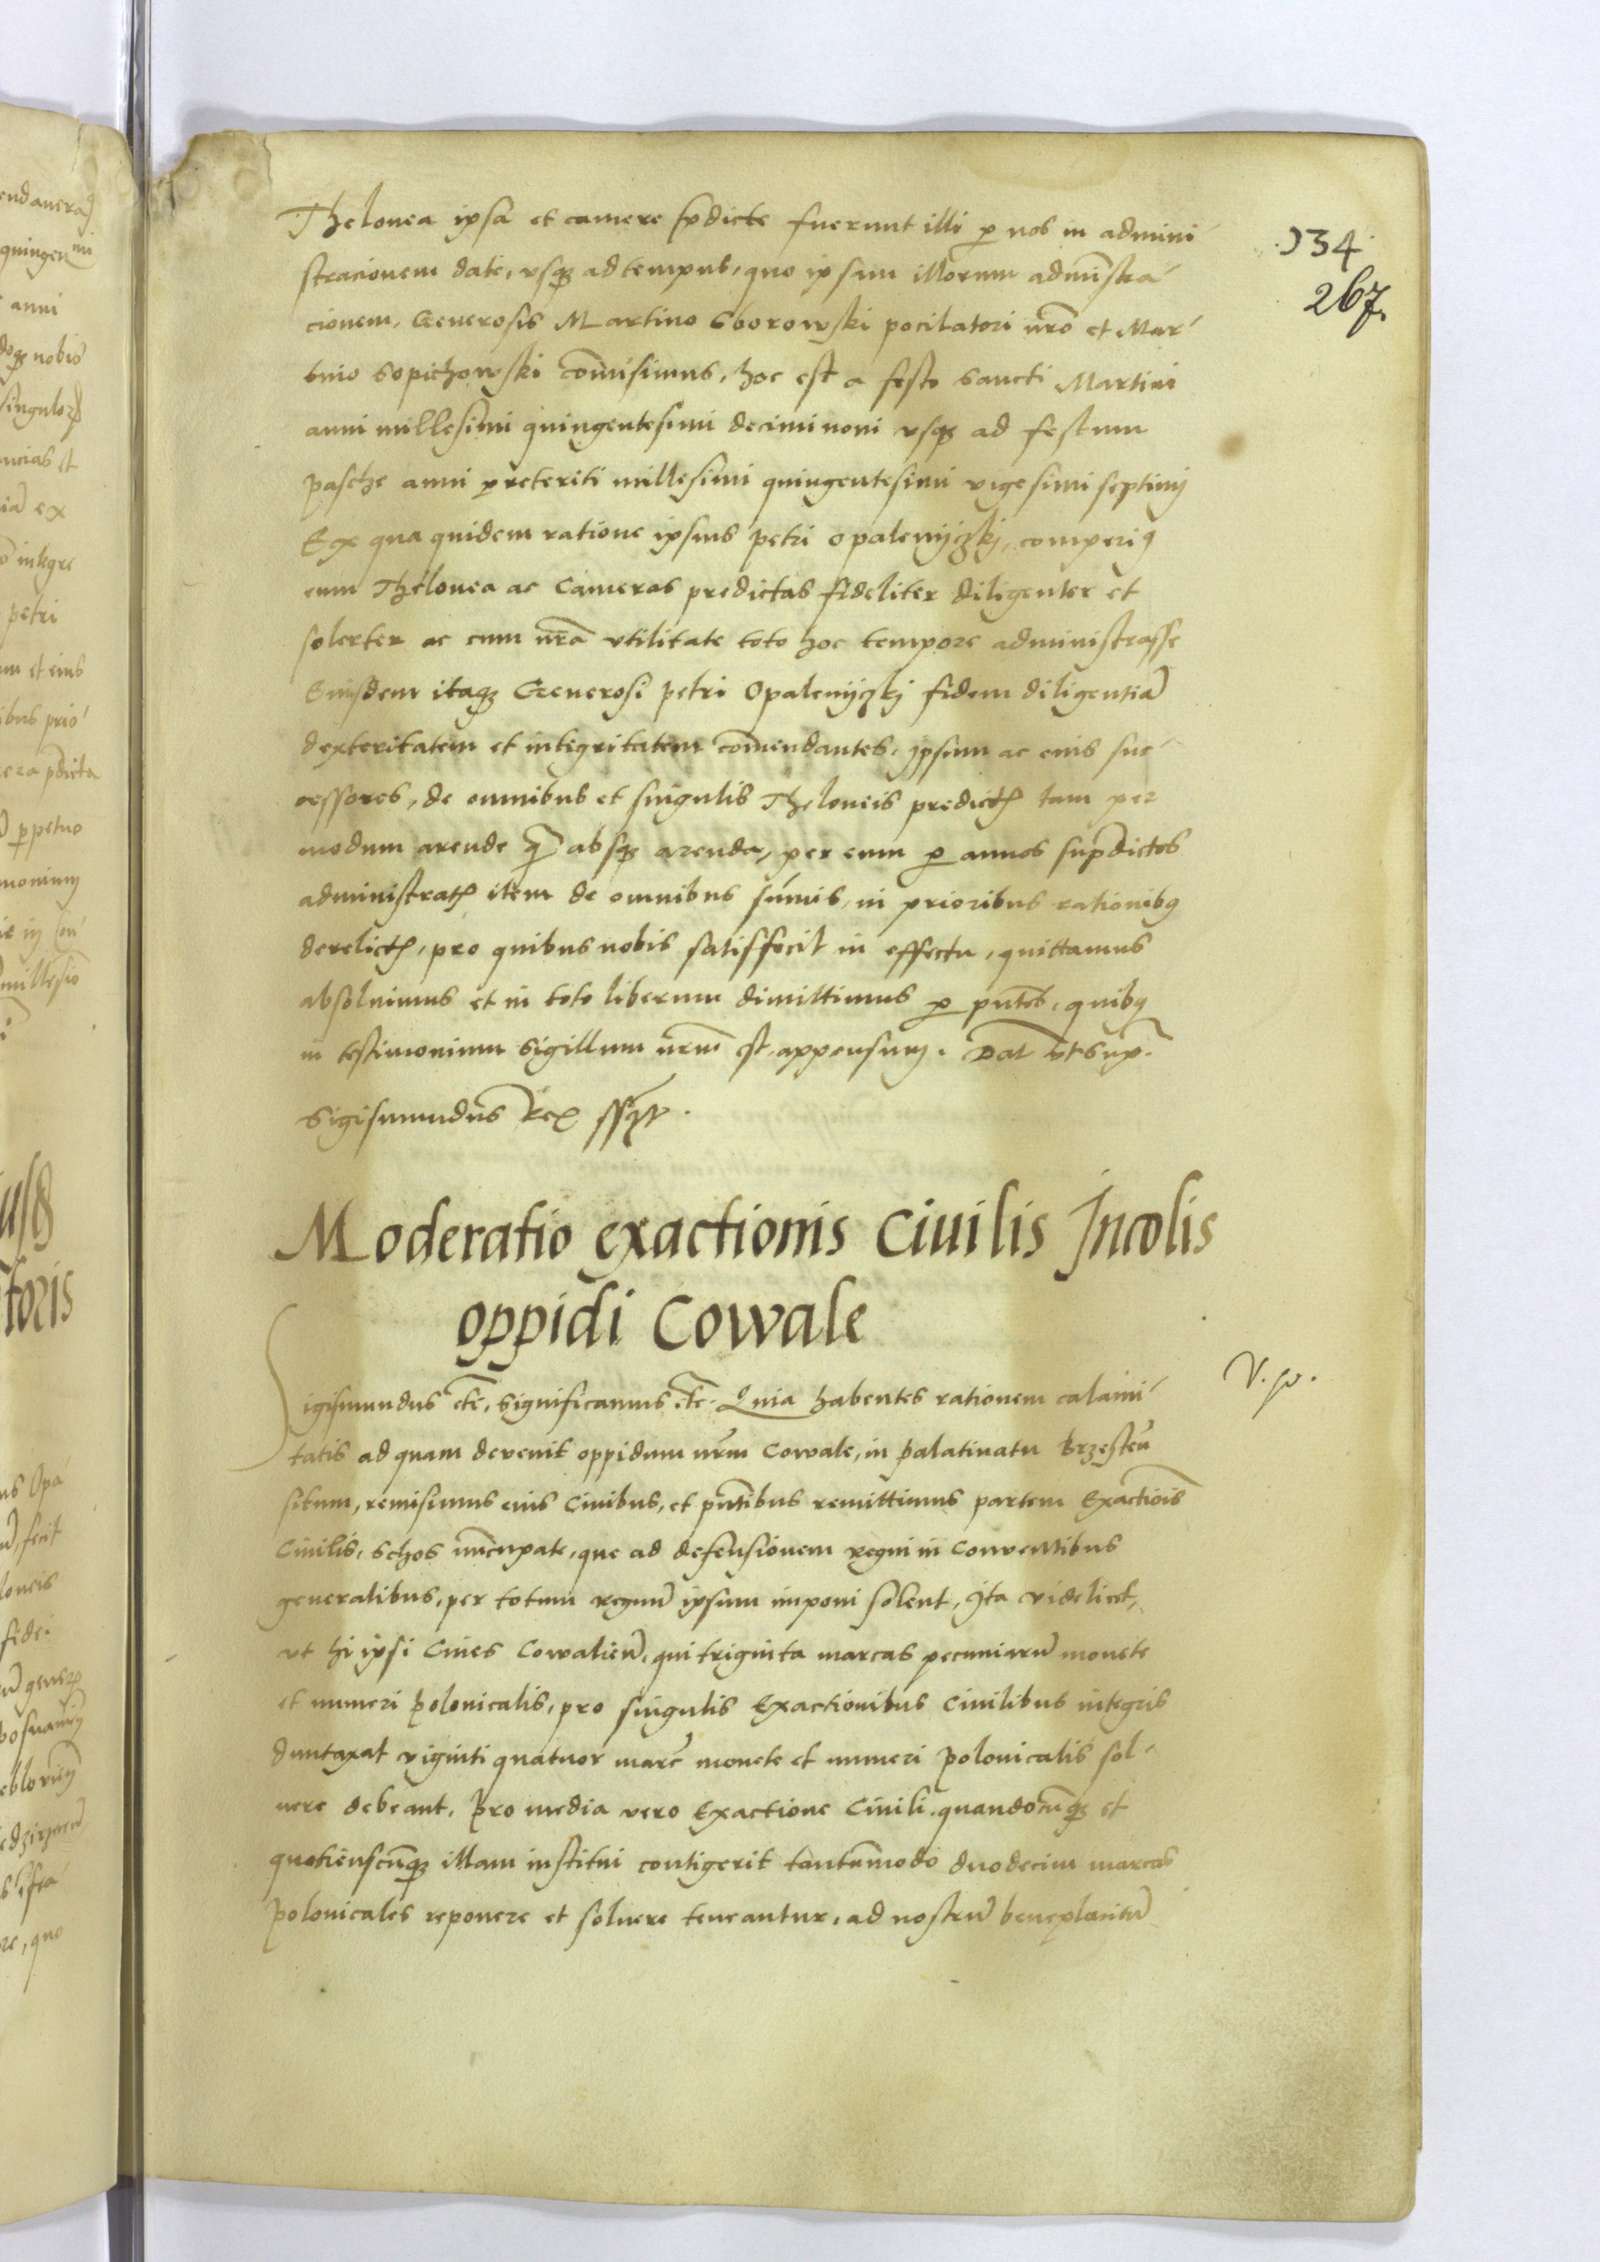 134
267.
Thelonea ipsa et camere p̄dicte fuerunt illi ꝑ nos in admini
stracionem date, vsqꝫ ad tempus, quo ipsam illorum adm̄istra
cionem, Generosis Martino Sborowski pocilatori nr̄o et Mar
tino Sopichowski com̄isimus, hoc est a festo sancti Martini
anni millesimi quingentesimi decimi noni vsqꝫ ad festum
pasche anni preteriti millesimi quingentesimi vigesimi septimj
Ex qua quidem ratione ipsius petri opalenyczkj, comperiꝯ
eum Thelonea ac Cameras predictas fideliter diligenter et
solerter ac cum nr̄a vtilitate toto hoc tempore administrasse
Eiusdem itaqꝫ Generosi petri Opalenyczkj fidem diligentiā
dexteritatem et integritatem com̄endantes, ipsum ac eius suc
cessores, de omnibus et singulis Theloneis predictꝭ tam per
modum arende qꝫ absqꝫ arenda, per eum ꝑ annos sup̄dictos
administratꝭ item de omnibus sum̄is, in prioribus rationibꝯ
derelictꝭ, pro quibus nobis satisfecit in effectu, quittamus
absoluimus et in toto liberum dimittimus ꝑ pn̄tes, quibꝯ
in testimonium Sigillum nr̄um est appensum. Dat vt sup̄.
Sigismundus Rex sst.
Moderatio exactionis Ciuilis Incolis
oppidi Cowale
V. w.
Sigismundus etc̄, significamus etc̄. Quia habentes rationem calami
tatis ad quam devenit oppidum nr̄m Cowale, in palatinatu Brzesten̄
situm, remisimus eius Ciuibus, et pn̄tibus remittimus partem Exactiōis
Ciuilis, Schos nūcupate, que ad defensionem regni in Conventibus
generalibus, per totum regnū ipsum imponi solent, Ita videlicet,
vt hi ipsi Ciues Cowalien̄, qui triginta marcas pecuniarū monete
et numeri polonicalis, pro singulis Exactionibus Ciuilibus integris
duntaxat viginti quatuor marc̄ monete et numeri polonicalis sol
uere debeant, pro media vero Exactione Ciuili, quandocūqꝫ et
quotienscūqꝫ illam institui contigerit tantūmodo duodecim marcas
polonicales reponere et soluere teneantur, ad nostrū beneplacitū